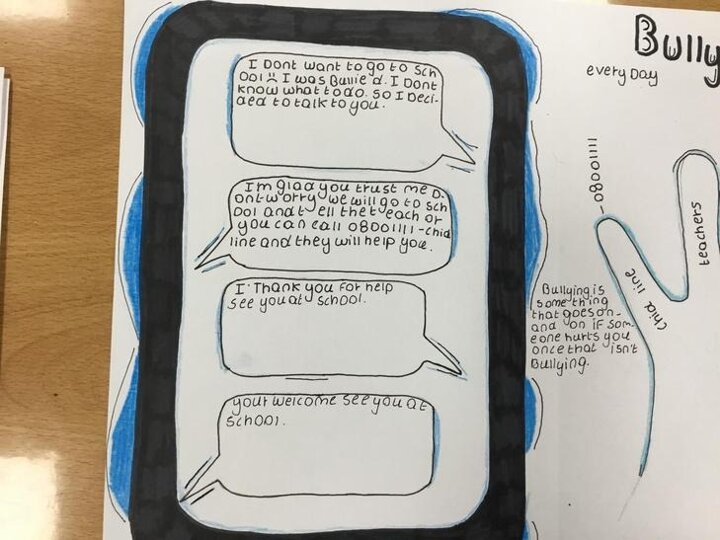 I Dont want to go to Sch
ool I was Bullied. I Dont
know what to do. so I Deci-
ded to talk to you.
Im glad you trust me D-
ont-worry we will go to Sch
ool and tell the teach or
you can call 08001111-chid
line and they will help you.
I Thank you for help
see you at school.
your welcome see you at
school.
Bully
every Day
-08001111
chid line
teachers
Bullying is
some thing
that goes on-
and on if som-
eone hurts you
once that isn't
Bullying.